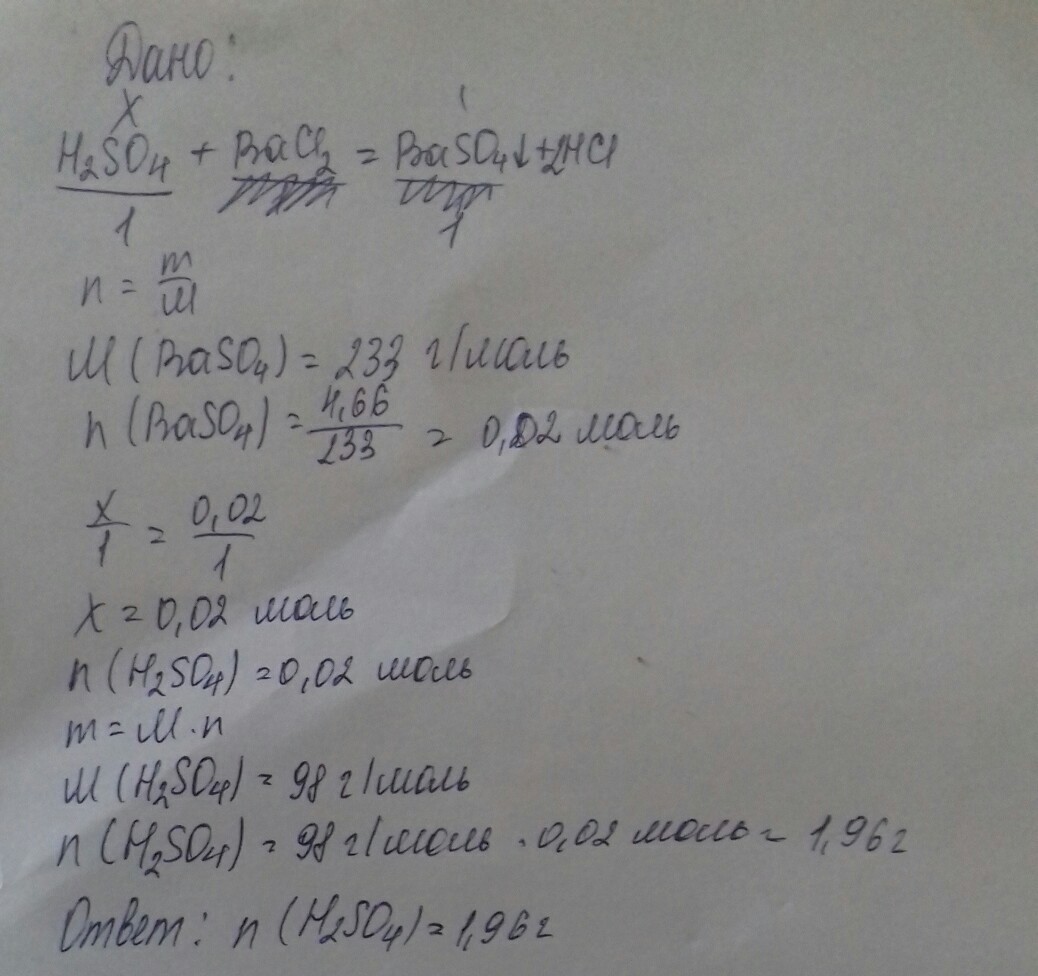 Дано:
X
H₂SO₄ + BaCl₂ = BaSO₄↓+2HCl
1 1
n = m/M
M (BaSO₄) = 233 г/моль
n (BaSO₄) = 4,66/233 = 0,02 моль
x/1 = 0,02/1
x = 0,02 моль
n (H₂SO₄) = 0,02 моль
m = M · n
M (H₂SO₄) = 98 г/моль
n (H₂SO₄) = 98 г/моль · 0,02 моль = 1,96 г
Ответ: n (H₂SO₄) = 1,96 г